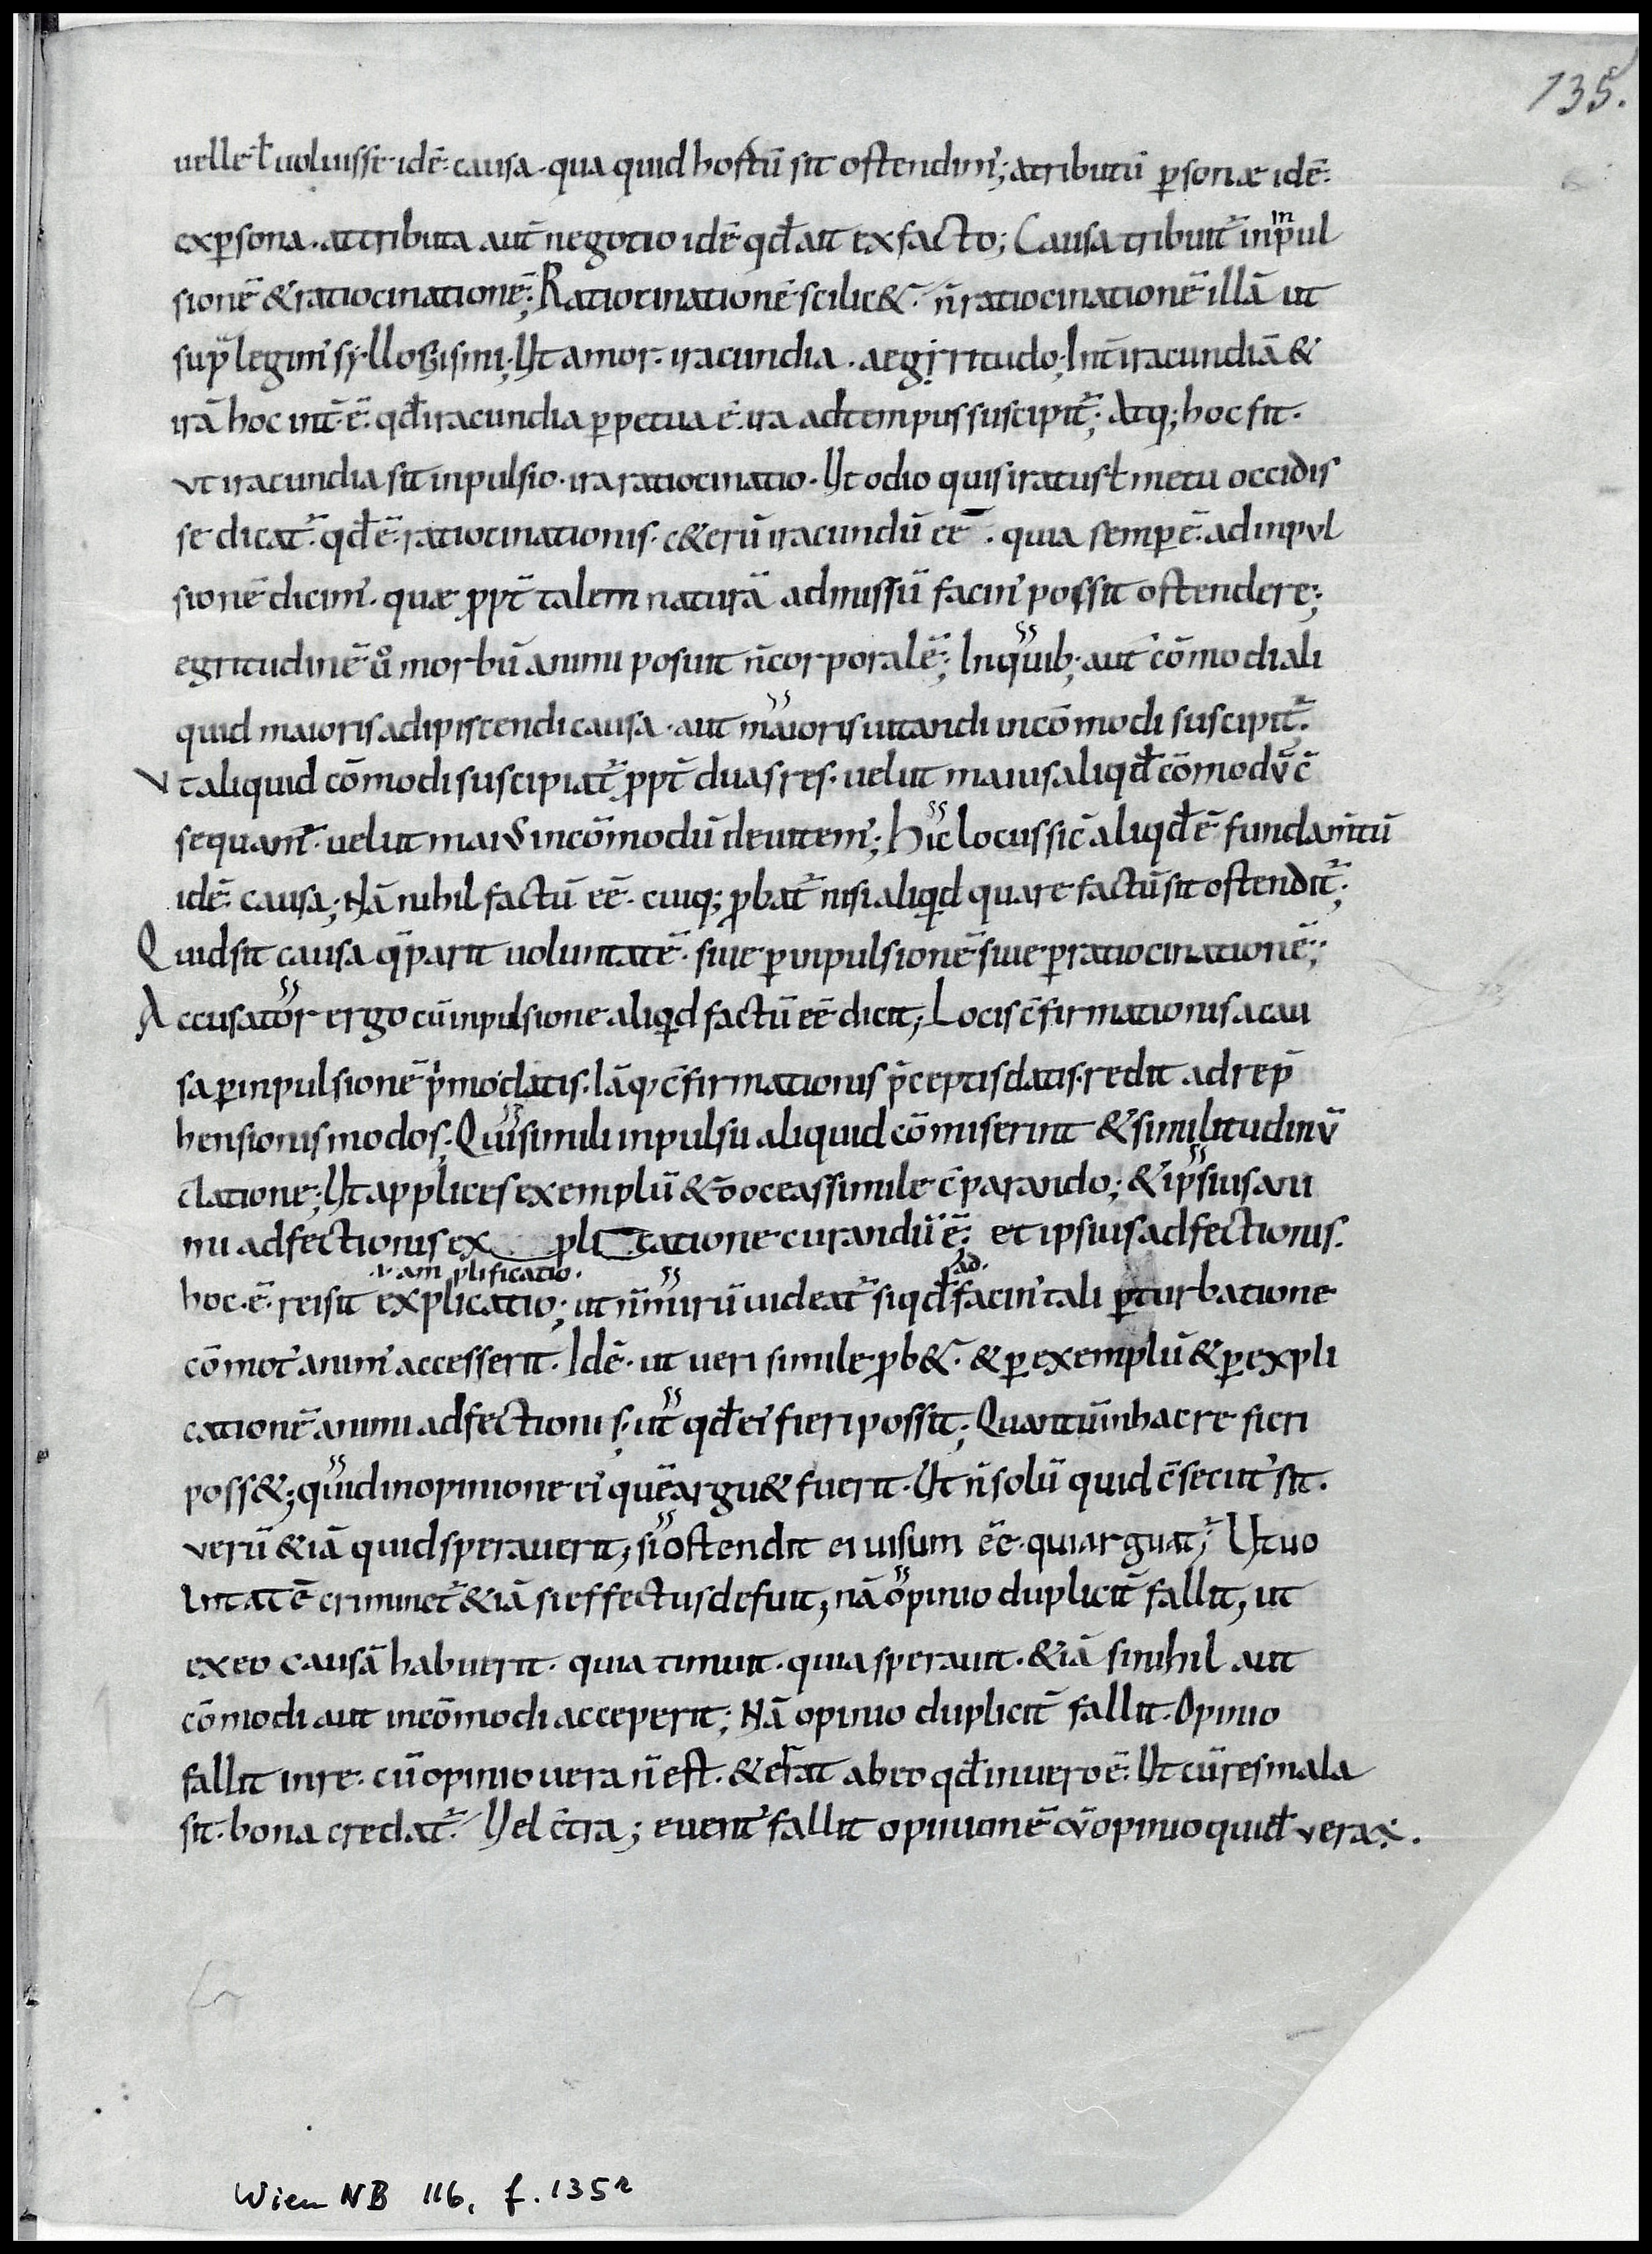 135.
uelle ł uoluisse · idē · causa · qua quid hostū sit ostendim᾿; atributū ꝑsonæ idē ·
exꝑsona · attributa aut̄ negotio idē qđ ait ex facto; Causa tribuit᷑ inpul
sionē & ratiocinationē; Ratiocinationē scilic& · n̄ ratiocinationē illā ut
sup̄ legim᾿ syllogismi; Ut amor · iracundia · aegrritudo; Int̄ iracundiā &
irā hoc int̄ · ē · qđ iracundia ꝑpetua ē · ira ad tempus suscipit᷑; Atq; hoc sit ·
vt iracundia sit inpulsio · ira ratiocinatio · Ut odio quis iratus ł metu occidis
se dicat᷑ · qđ ē · ratiocinationis · c&erū iracundū eē · quia semꝑ ē · ad inpvl
sionē dicim᾿ · quæ ꝓpt̄ talem naturā admissū facin᾿ possit ostendere;
egritudinē ū morbū animi posuit n̄ corporalē; In quib; aut cōmodi ali
quid maioris adipiscendi causa · aut maioris uitandi incōmodi suscipit᷑ ·
Vt aliquid cōmodi suscipiat᷑ ꝓpt̄ duas res · uel ut maius aliqđ cōmodv̄ c̄
sequam᷑ · uel ut maiꝰ incōmodū deuitem᾿; Hic locus sic̄ aliqđ ē · fundam̄tū
idē · causa; Nā nihil factū eē · cuiq; ꝓbat᷑ nisi aliqid quare factū sit ostendit᷑;
Quid sit causa q̄ parit uoluntatē · siue ꝑ inpulsionē siue ꝑ ratiocinationē;
Accusator ergo cū inpulsione aliqid factū eē dicit; Locis c̄firmationis a cau
sa ꝑ inpulsionē p̄mo datis · Iā q, c̄firmationis p̄ceptis datis · redit ad rep̄
hensionis modos; Qui simili inpulsu aliquid cōmiserint & similitudinv̄
clatione; Ut applices exemplū & doceas simile c̄parando; & ipsius ani
mi adfectionis ex pli tatione curandū ē · et ipsius adfectionis ·
·i· am plificatio ·
hoc · ē · rei sit explicatio; ut n̄ mirū uideat᷑ si qđ ad facin᾿ tali ꝑturbatione
cōmot᾿ anim᾿ accesserit · Idē · ut ueri simile ꝓb& · & ꝑ exemplū & ꝑ expli
cationē animi adfectionis; ut qđ ei᾿ fieri possit; Quantū in hac re fieri
poss&; quid in opinione ei᾿ quē argu& fuerit · Ut n̄ solū quid c̄secut᾿ sit ·
verū &iā quid sperauerit; si ostendit ei uisum eē · qui arguat᷑; Ut uo
luntatē criminet᷑ &iā si effectus defuit; nā opinio duplicit̄ fallit, ut
ex eo causā habuerit · quia timuit · quia sperauit · &iā si nihil aut
cōmodi aut incōmodi acceperit; Nā opinio duplicit̄ fallit · Opinio
fallit in re · cū opinio uera n̄ est · & errat ab eo qđ in uero ē · Ut cū res mala
sit · bona credat᷑ · Uel c̄tra; euent᾿ fallit opinionē cv̄ opinio quidē verax ·
Wien NB 116, f. 135r